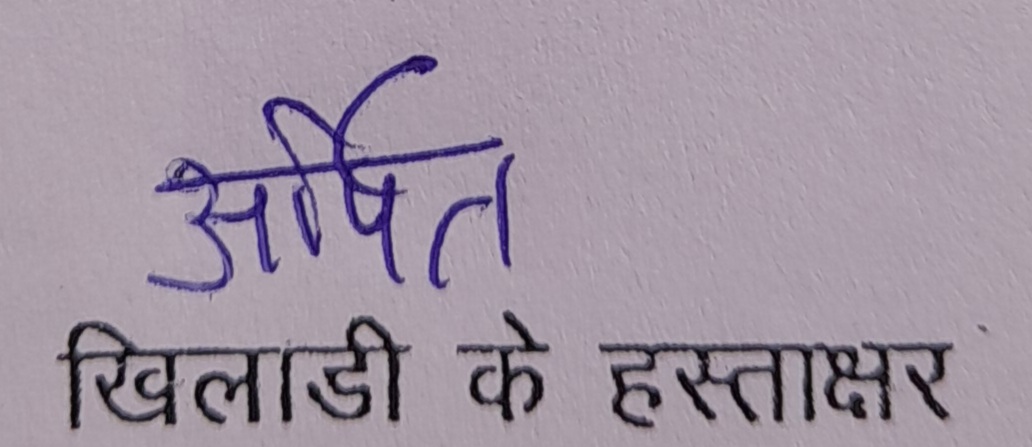 अर्पित
खिलाडी के हस्ताक्षर